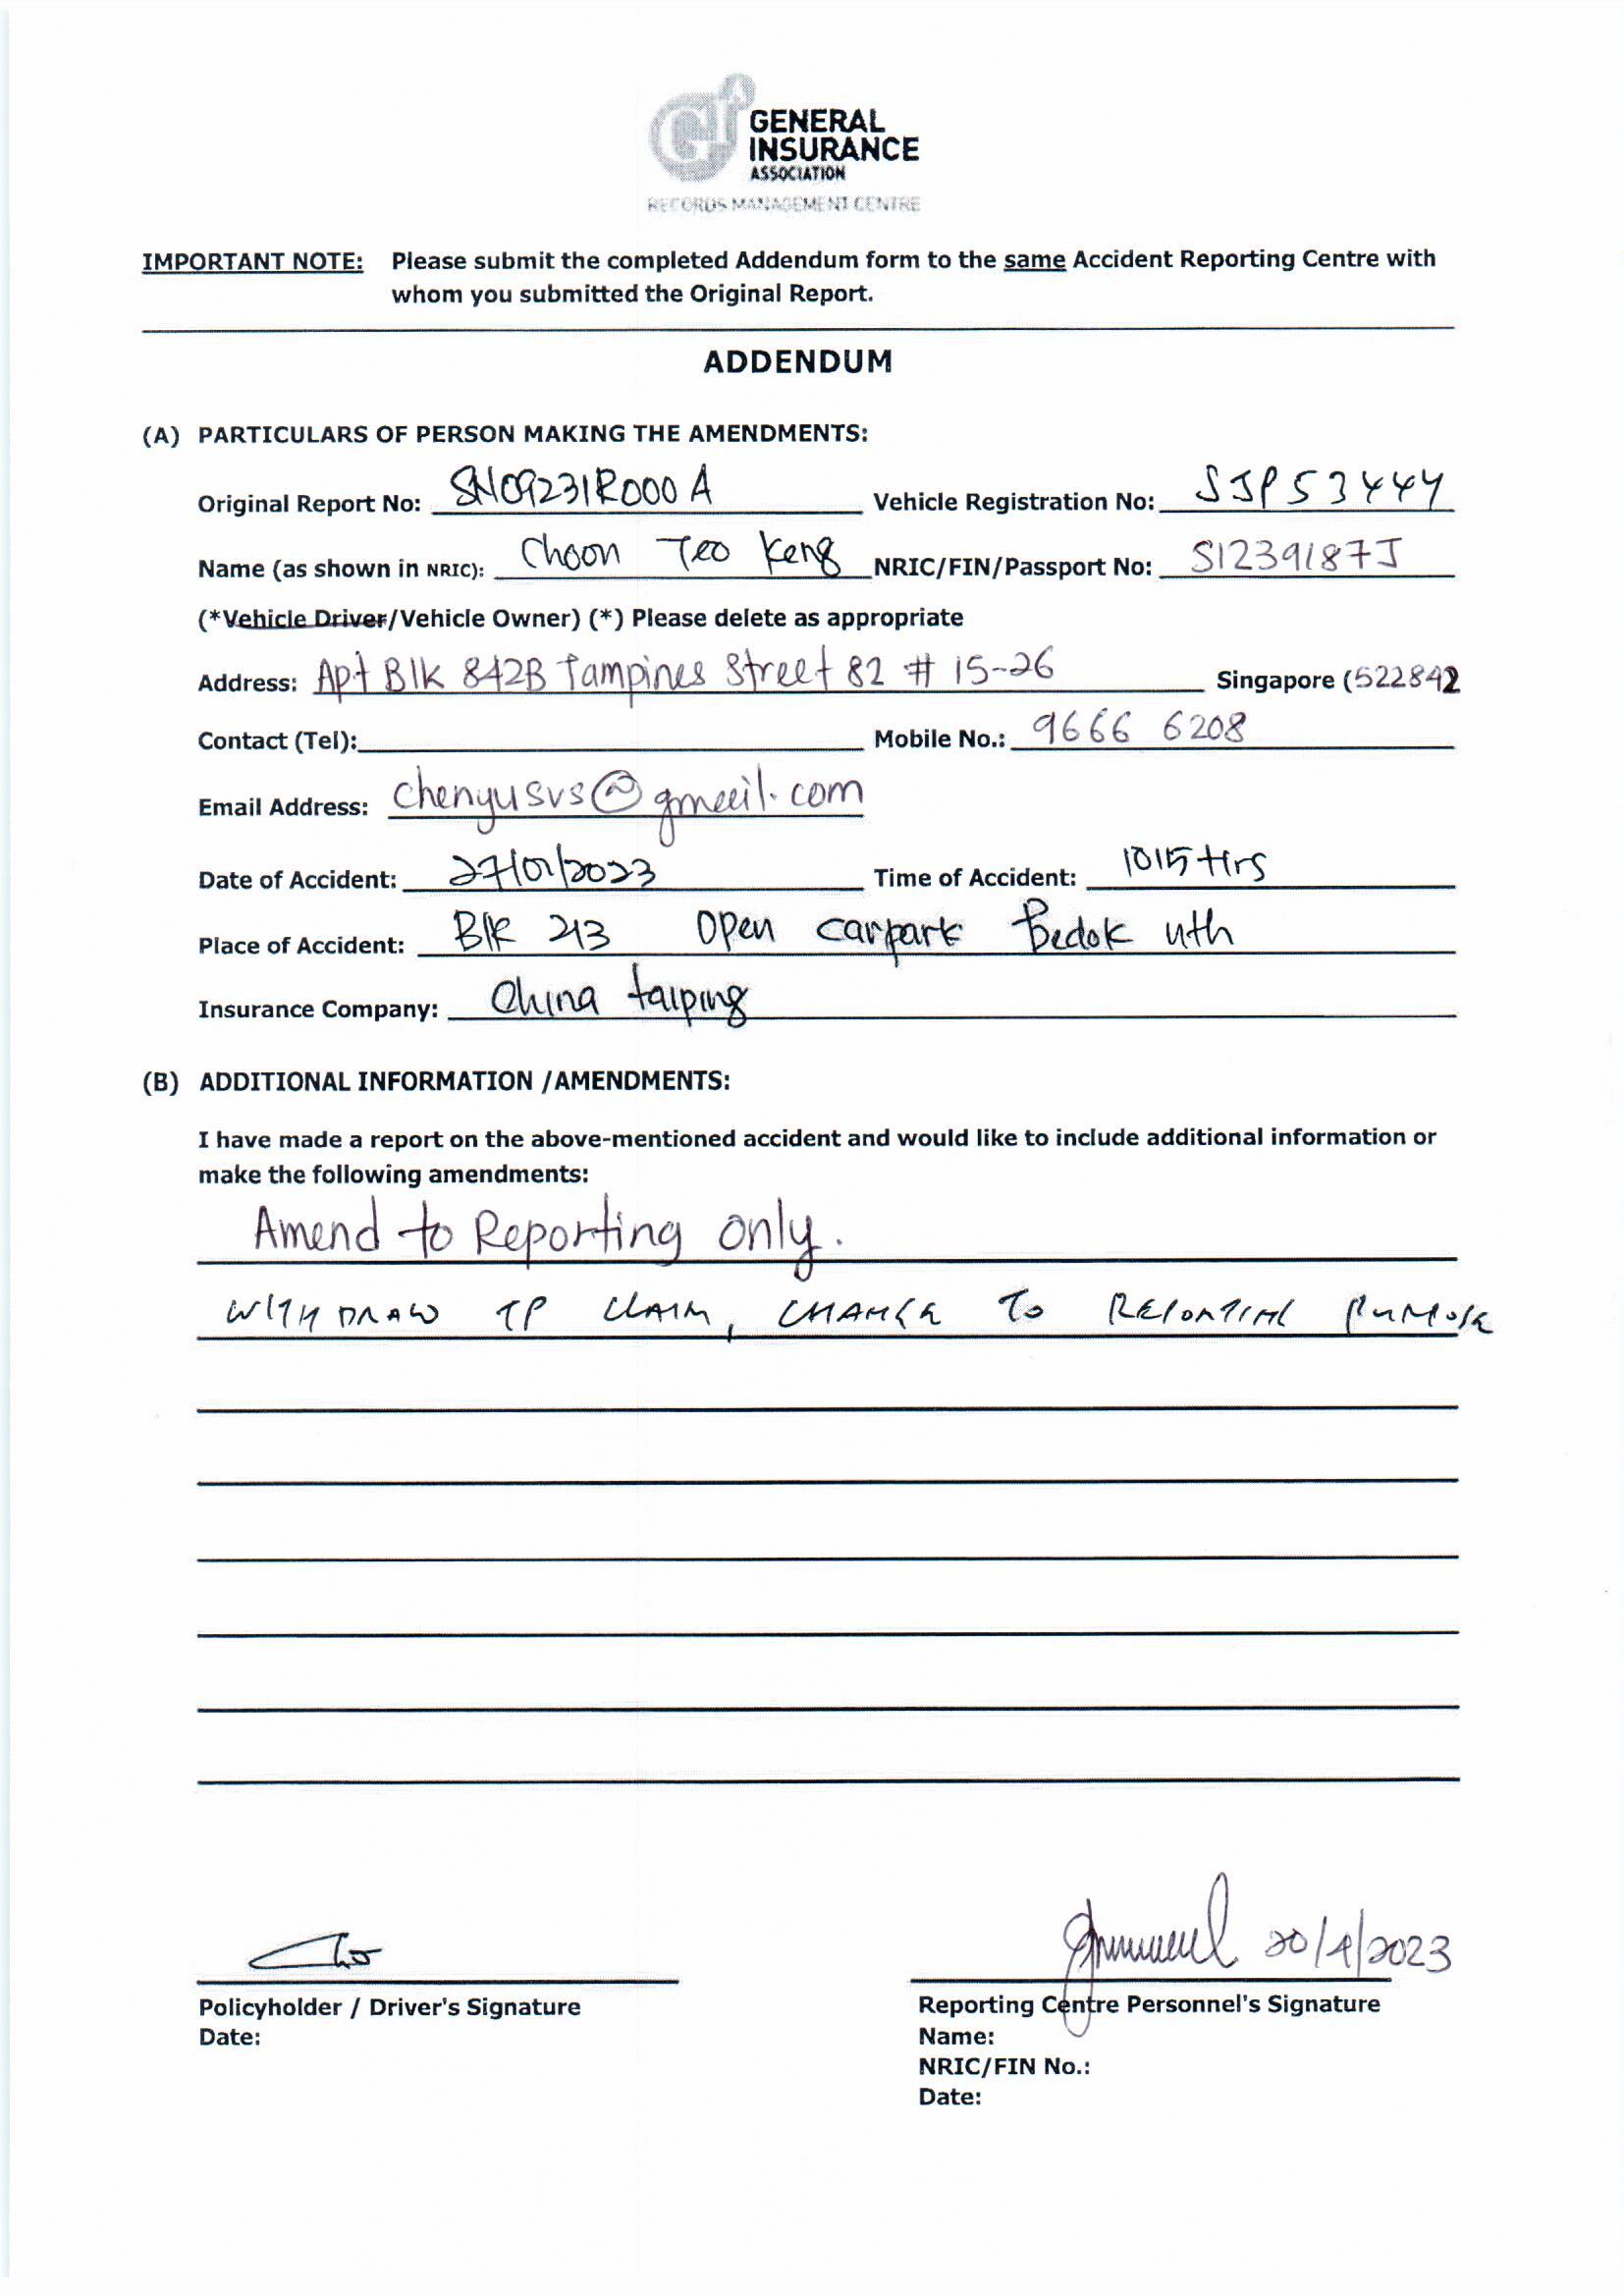 GIA GENERAL
INSURANCE
ASSOCIATION
RECORDS MANAGEMENT CENTRE
IMPORTANT NOTE: Please submit the completed Addendum form to the same Accident Reporting Centre with
whom you submitted the Original Report.
ADDENDUM
(A) PARTICULARS OF PERSON MAKING THE AMENDMENTS:
Original Report No: SN09231R000A Vehicle Registration No: SJP5344Y
Name (as shown in NRIC): Choon Teo Keng NRIC/FIN/Passport No: S1239187J
(*Vehicle Driver/Vehicle Owner) (*) Please delete as appropriate
Address: Apt Blk 842B Tampines Street 82 # 15-26 Singapore (522842
Contact (Tel): Mobile No.: 9666 6208
Email Address: chenyusvs@gmail.com
Date of Accident: 27/01/2023 Time of Accident: 1015 Hrs
Place of Accident: Blk 213 Open carpark Bedok nth
Insurance Company: China taiping
(B) ADDITIONAL INFORMATION /AMENDMENTS:
I have made a report on the above-mentioned accident and would like to include additional information or
make the following amendments:
Amend to Reporting only.
WITHDRAW TP CLAIM, CHANGE TO REPORTING PURPOSE
20/4/2023
Policyholder / Driver's Signature Reporting Centre Personnel's Signature
Date: Name:
NRIC/FIN No.:
Date: